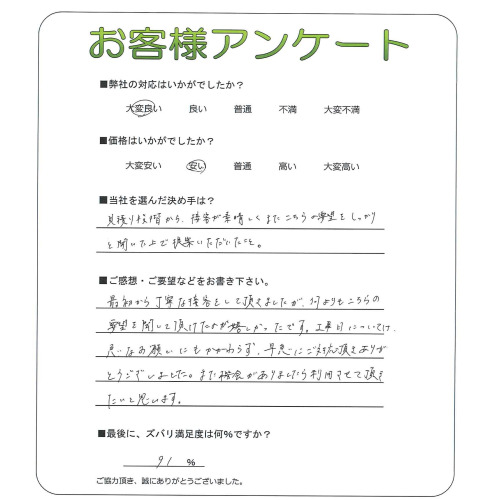 お客様アンケート
■弊社の対応はいかがでしたか？
大変良い 良い 普通 不満 大変不満
■価格はいかがでしたか？
大変安い 安い 普通 高い 大変高い
■当社を選んだ決め手は？
見積り段階から、接客が素晴しくまたこちらの要望をしっかり
と聞いた上で提案いただいたこと。
■ご感想・ご要望などをお書き下さい。
最初から丁寧な接客をして頂きましたが、何よりもこちらの
要望を聞して頂けたのが嬉しかったです。工事日については、
急なお願いにもかかわらず、早急にご対応頂きありが
とうございました。また機会がありましたら利用させて頂き
たいと思います。
■最後に、ズバリ満足度は何％ですか？
91 ％
ご協力頂き、誠にありがとうございました。